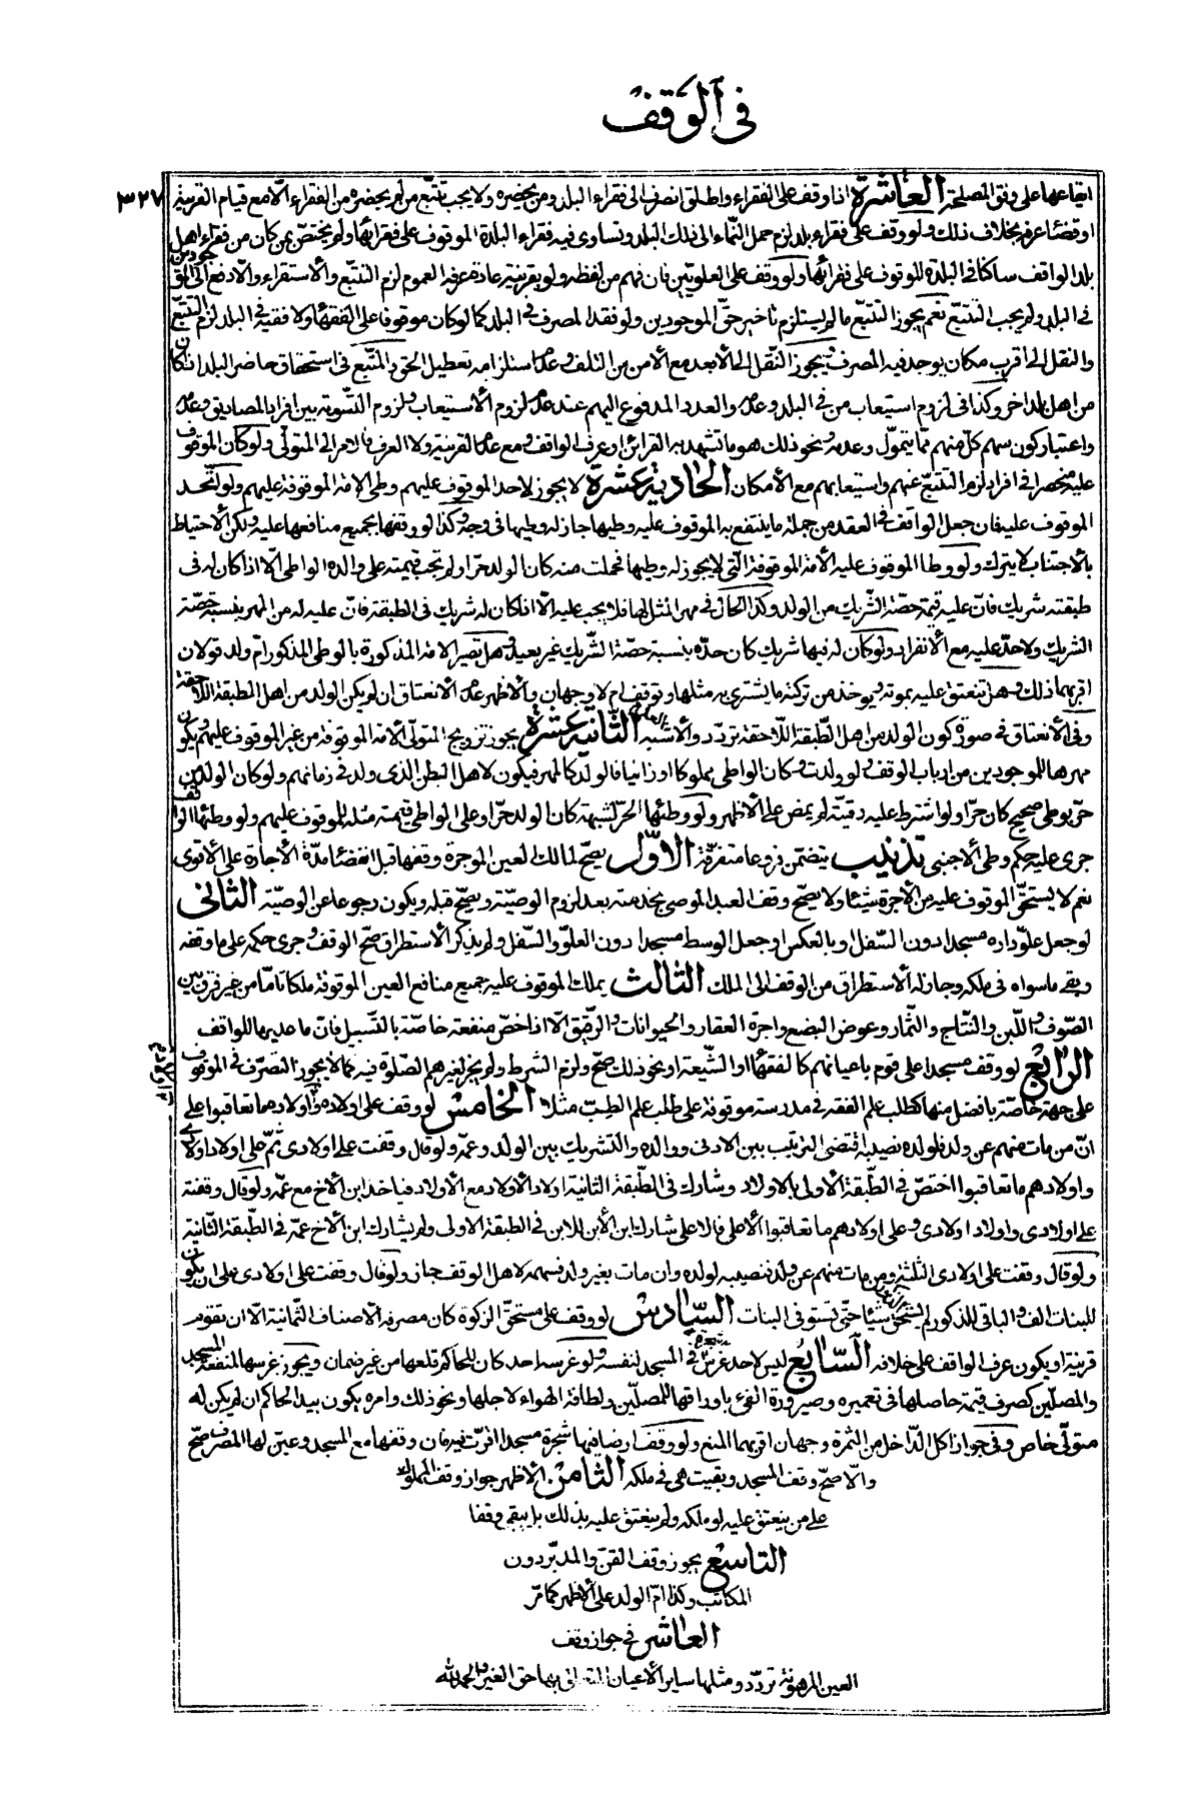 في الوقف
٣٢٧
ايقاعها على وفق المصلحة العاشرة اذا وقف على الفقراء واطلق انصرف الى فقراء البلد ومن يحضره ولا يجب تتبّع من لم يحضره من الفقراء الّا مع قيام القرينة
او قضاء عرفه بخلاف ذلك ولو وقف على فقراء بلد لزم حمل النّماء الى ذلك البلد وتساوى فيه فقراء البلدة الموقوف على فقرائها ولم يختصّ بمن كان من فقراء اهل
بلد الواقف ساكنا في البلدة الموقوف على فقرائها ولو وقف على العلويّين فان فهم من لفظه ولو بقرينة عادة عرفيه العموم لزم التتبّع والاستقراء والّا دفع الى الموجودين
في البلد ولم يجب التتبّع نعم يجوز التتبّع ما لم يستلزم تاخير حقّ الموجودين ولو فقد المصرف في البلد كما لو كان موقوفا على الفقهاء ولا فقيه في البلد لزم التتبّع
والنقل الى اقرب مكان يوجد فيه المصرف ويجوز النّقل الى الابعد مع الامن من التلف وعدم استلزامه تعطيل الحق والمتّبع في استحقاق حاضر البلد اذا كان
من اهل بلد اخر وكذا في لزوم استيعاب من في البلد وعدمه والعدد المدفوع اليهم عند عدم لزوم الاستيعاب ولزوم التّسوية بين افراد المصاديق وعدمه
واعتبار كون سهم كلّ منهم ممّا يتموّل وعدمه ونحو ذلك هو ما تشهد به القرائن او عرف الواقف ومع عدم القرينة ولا العرف فالامر الى المتولّى ولو كان الموقوف
عليه منحصرا في افراد لزم التتبّع عنهم واستيعابهم مع الامكان الحادية عشرة لا يجوز لاحد الموقوف عليهم وطى الامة الموقوفة عليهم ولو اتّحد
الموقوف عليه فان جعل الواقف في العقد من جملة ما ينتفع به الموقوف عليه وطيها جاز له وطيها في وجه وكذا لو وقفها بجميع منافعها عليه ولكن الاحتياط
بالاجتناب لا يترك ولو وطا الموقوف عليه الامة الموقوفة الّتي لا يجوز له وطيها فحملت منه كان الولد حرّا ولم تجب قيمته على والده الواطى الّا اذا كان له فى
طبقته شريك فانّ عليه قيمة حصّة الشّريك من الولد وكذا الحال في مهر المثل لها فلا يجب عليه الّا اذا كان له شريك في الطبقة فانّ عليه له من المهر بنسبة حصّته
الشريك ولا حدّ عليه مع الانفراد ولو كان له فيها شريك كان حدّه بنسبة حصّة الشّريك غير بعيد وهل تصير الامة المذكورة بالوطى المذكور امّ ولد قولان
اقربهما ذلك وهل تنعتق عليه بموته ويوخذ من تركته ما يشترى به مثلها وتوقف ام لا وجهان والاظهر عدم الانعتاق ان لم يكن الولد من اهل الطبقة اللاحقة
وفى الانعتاق في صورة كون الولد من اهل الطّبقة اللاحقة تردّد والاشبه الثانية عشرة يجوز تزويج المتولّى الامة الموقوفة من غير الموقوف عليهم ويكون
مهرها للموجودين من ارباب الوقف ولو ولدت وكان الواطى مملوكا او زانيا فالولد كالمهر فيكون لاهل البطن الذى ولد في زمانهم ولو كان الولد من
حرّ بوطى صحيح كان حرّا ولو اشترط عليه رقيّته لم يمض على الاظهر ولو وطئها الحرّ لشبهة كان الولد حرّا وعلى الواطى قيمته مثله للموقوف عليهم ولو وطئها الواقف
جرى عليه حكم وطى الاجنبى تذنيب يتضمّن فروعا متفرّقة الاوّل يصحّ لمالك العين الموجرة وقفها قبل انقضاء مدّة الاجارة على الاقوى
نعم لا يستحقّ الموقوف عليه من الاجرة شيئا ولا يصحّ وقف العبد الموصى بخدمته بعد لزوم الوصيّة ويصحّ قبله ويكون رجوعا عن الوصيّة الثانى
لو جعل علوّ داره مسجدا دون السّفل او بالعكس او جعل الوسط مسجدا دون العلوّ والسّفل ولم يذكر الاستطراق صحّ الوقف وجرى حكمه على ما وقفه
وبقى ما سواه في ملكه وجاز له الاستطراق من الوقف الى الملك الثالث يملك الموقوف عليه جميع منافع العين الموقوفة ملكا تامّا من غير فرق بين
الصّوف واللّبن والنّتاج والثّمار وعوض البضع واجرة العقار والحيوانات والرّقيق الّا اذا خصّ منفعته خاصّة بالتّسبيل فانّ ما عديها للواقف
الرابع لو وقف مسجدا على قوم باعيانهم كالفقهاء او الشّيعة او نحو ذلك صحّ ولزم الشرط ولم يجز لغيرهم الصّلوة فيه كما لا يجوز التصرّف في الموقوف
على جهة خاصّة بافضل منها كطلب علم الفقه في مدرسة موقوفة على طلب علم الطبّ مثلا الخامس لو وقف على اولاده واولادهم ما تعاقبوا على
انّ من مات منهم عن ولد فلولده نصيبه اقتضى الترتيب بين الادنى ووالده والتشريك بين الولد وعمّه ولو قال وقفت على اولادى ثمّ على اولاد اولادى
واولادهم ما تعاقبوا اختصّ في الطّبقة الاولى بالاولاد وشارك في الطّبقة الثانية اولاد الاولاد مع الاولاد فياخذ ابن الاخ مع عمّه ولو قال وقفته
على اولادى واولاد اولادى وعلى اولادهم ما تعاقبوا الاعلى فالاعلى شارك ابن الابن للابن في الطبقة الاولى ولم يشارك ابن الاخ عمّه في الطّبقة الثّانية
ولو قال وقفت على اولادى الثلثة ومن مات منهم عن ولد فنصيبه لولده وان مات بغير ولد فسهمه لاهل الوقف جاز ولو قال وقفت على اولادى على ان يكون
للبنات الف والباقى للذكور لم يستحقّ الذكور شيئا حتّى تستوفى البنات السّادس لو وقف على مستحقّ الزكوة كان مصرفه الاصناف الثّمانية الّا ان تقوم
قرينة او يكون عرف الواقف على خلافه السّابع ليس لاحد غرس شجرة في المسجد لنفسه ولو غرسه احد كان للحاكم قلعها من غير ضمان ويجوز غرسها لمنفعة المسجد
والمصلّين كصرف قيمة حاصلها في تعميره وصيرورة الفىء باوراقها للمصلّين ولطافة الهواء لاجلها ونحو ذلك وامره يكون بيد الحاكم ان لم يكن له
متولّى خاص وفى جواز اكل الدّاخل من الثمرة وجهان اقربهما المنع ولو وقف ارضا فيها شجرة مسجدا افرت فيه فان وقفها مع المسجد وعيّن لها المصرف صحّ
والّا صحّ وقف المسجد وبقيت هى في ملكه الثامن الاظهر جواز وقف المملوك
على من ينعتق عليه لو ملكه ولم ينعتق عليه بذلك بل يبقى وقفا
التاسع يجوز وقف القنّ والمدبّر دون
المكاتب وكذا امّ الولد على الاظهر كما مرّ
العاشر في جواز وقف
العين المرهونة تردّد ومثلها ساير الاعيان المتعلق بها حق الغير والحمد لله